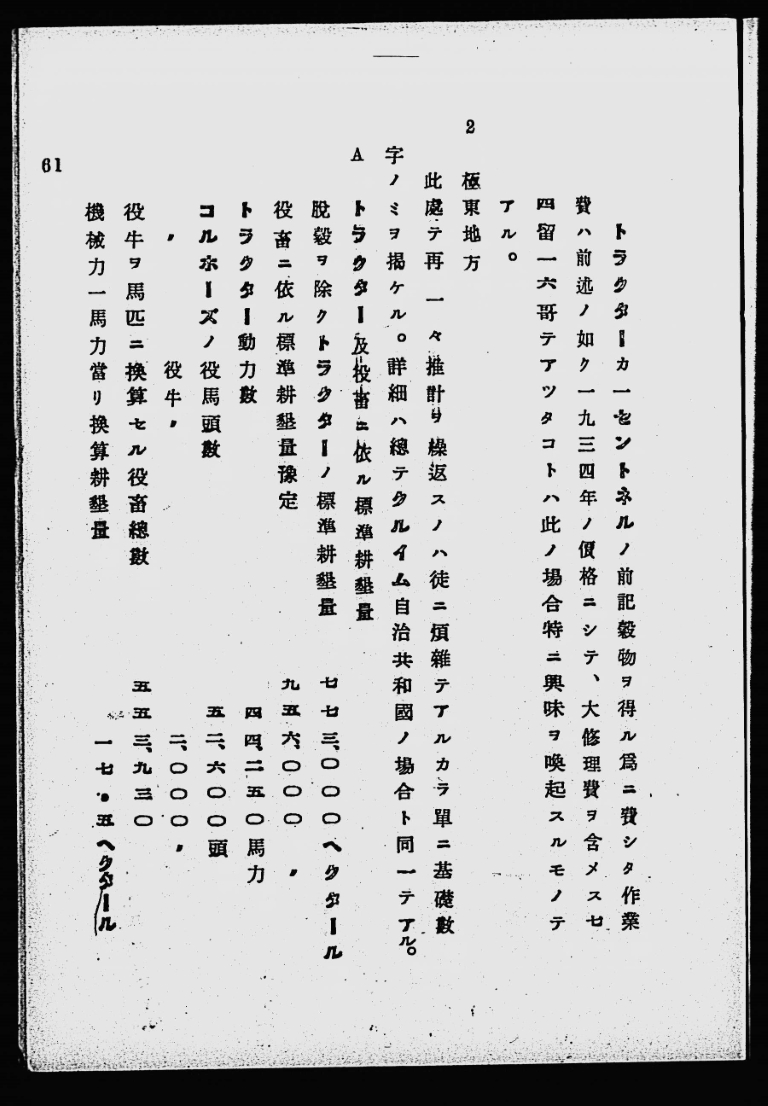 トラクターカ一セントネルノ前記穀物ヲ得ル爲ニ費シタ作業
費ハ前述ノ如ク一九三四年ノ價格ニシテ、大修理費ヲ含メス七
四留一六哥テアツタコトハ此ノ場合特ニ興味ヲ喚起スルモノテ
アル。
2 極東地方
此處テ再一々推計ヲ繰返スノハ徒ニ煩雜テアルカラ單ニ基礎數
字ノミヲ揭ケル。詳細ハ總テクルイム自治共和國ノ場合ト同一テアル。
A トラクター及役畜ニ依ル標準耕墾量
脫穀ヲ除クトラクターノ標準耕墾量 七七三、〇〇〇ヘクタール
役畜ニ依ル標準耕墾量豫定 九五六、〇〇〇〃
トラクター動力數 四四、二五〇馬力
コルホーズノ役馬頭數 五二、六〇〇頭
〃 役牛〃 二、〇〇〇〃
役牛ヲ馬匹ニ換算セル役畜總數 五五三、九三〇
機械力一馬力當リ換算耕墾量 一七・五ヘクタール
61